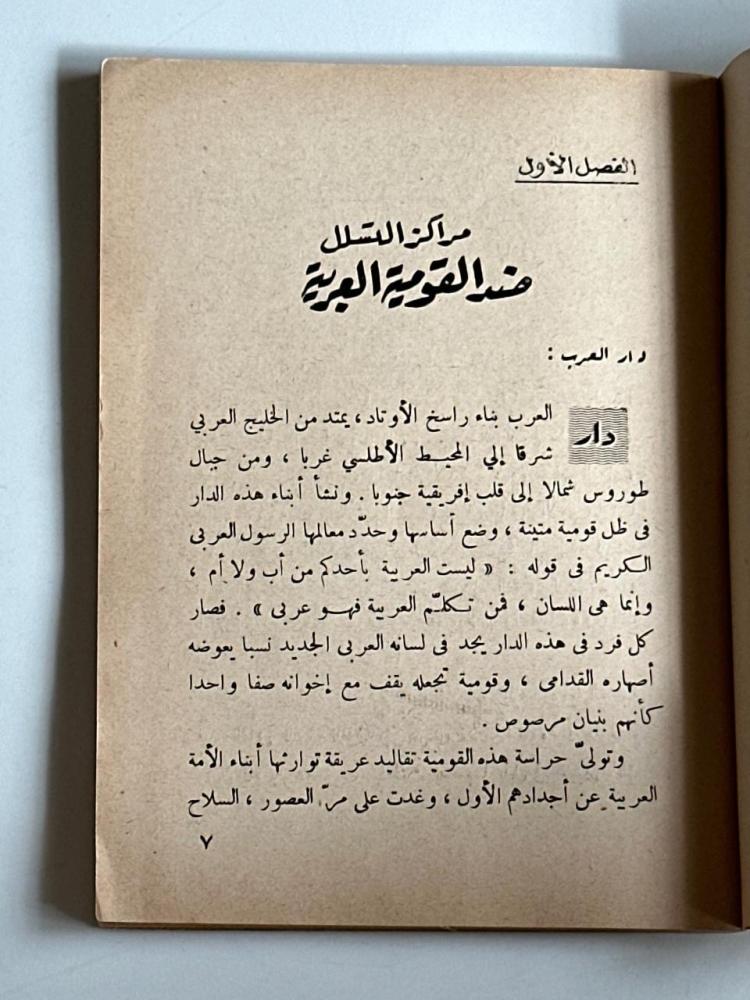 الفصل الأول
مراكز التسلل
ضد القومية العربية
دار العرب :
دار العرب بناء راسخ الأوتاد، يمتد من الخليج العربي
شرقا إلي المحيط الأطلسي غربا ، ومن جبال
طوروس شمالا إلى قلب إفريقية جنوبا . ونشأ أبناء هذه الدار
فى ظل قومية متينة ، وضع أساسها وحدّد معالمها الرسول العربى
الكريم فى قوله : « ليست العربية بأحدكم من أب ولا أم ،
وإنما هى اللسان ، فمن تكلّم العربية فهو عربى » . فصار
كل فرد فى هذه الدار يجد فى لسانه العربى الجديد نسبا يعوضه
أصهاره القدامى ، وقومية تجعله يقف مع إخوانه صفا واحدا
كأنهم بنيان مرصوص .
وتولىّ حراسة هذه القومية تقاليد عريقة توارثها أبناء الأمة
العربية عن أجدادهم الأول ، وغدت على مرّ العصور ، السلاح
٧